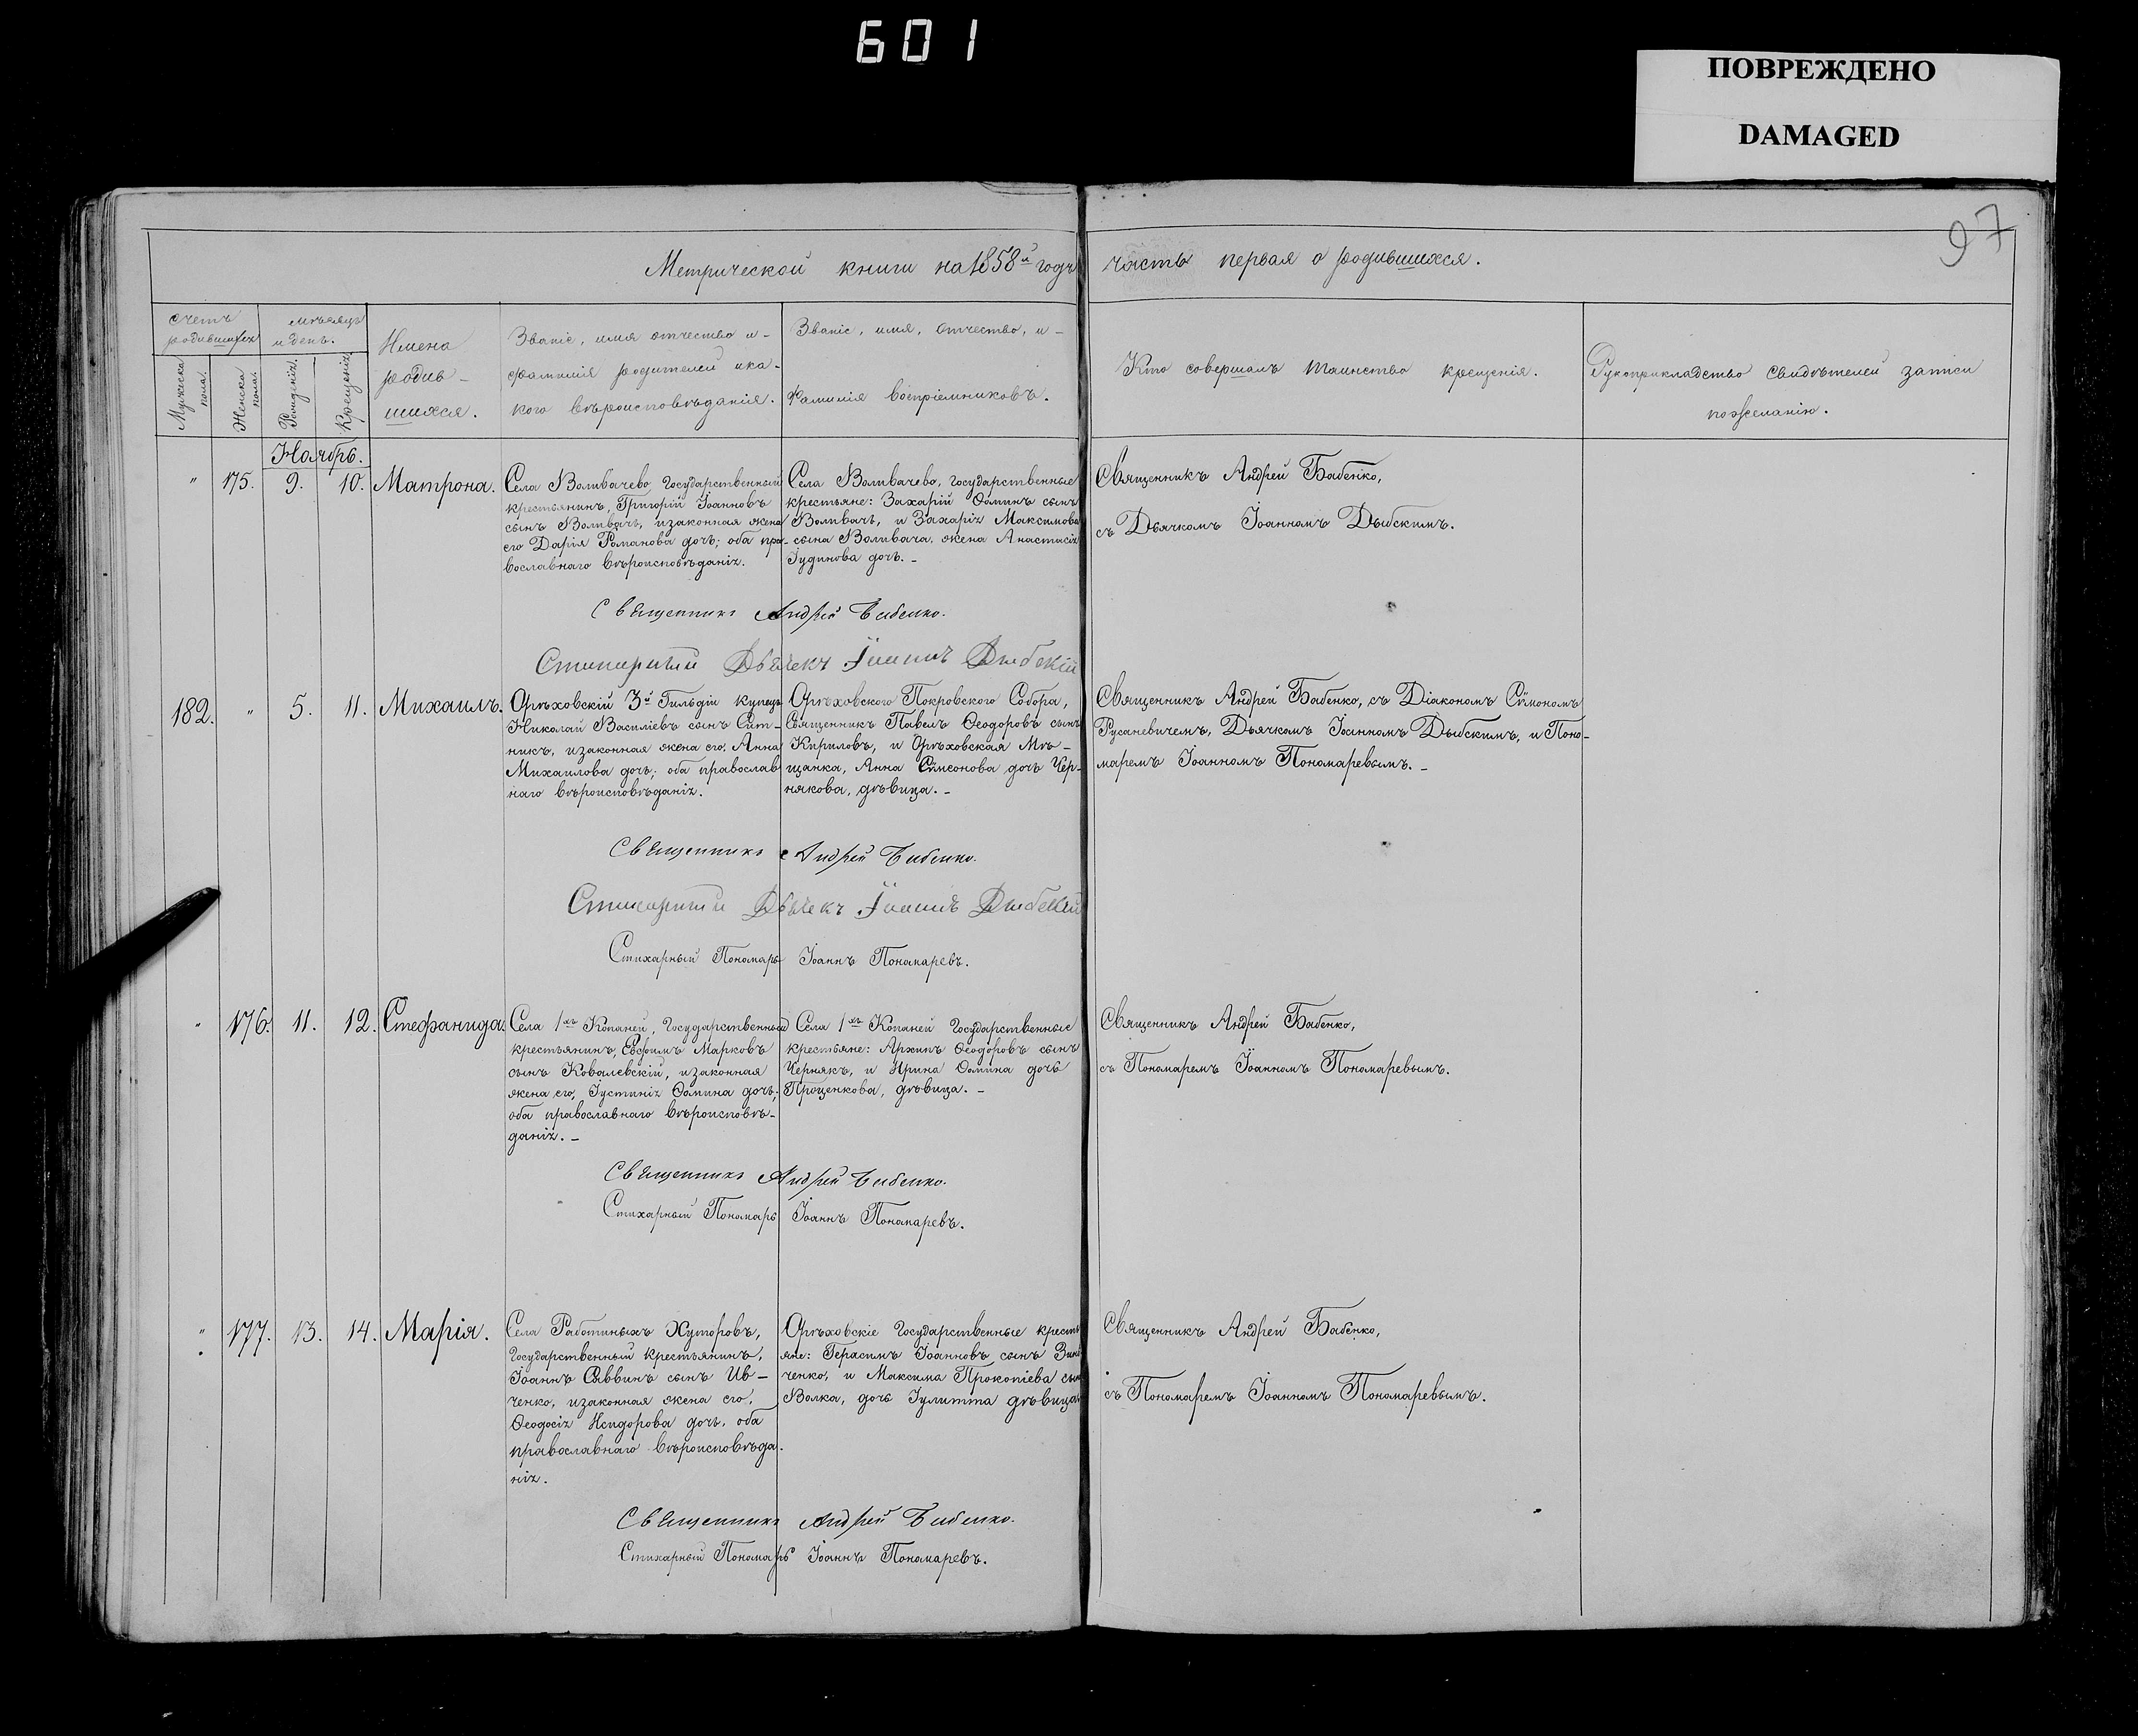 601
ПОВРЕЖДЕНО
DAMAGED
97
Метрической книги на 1858й годъ часть первая о родившихся.
Счетъ родившихся
Мужеска пола.
Женска пола.
мѣсяцъ и день.
Рожденія.
Крещенія.
Имена родившихся.
Званіе, имя отчество и фамилія родителей и какого вѣроисповѣданія.
Званіе, имя, отчество, и фамилія воспріемниковъ.
Кто совершалъ таинство крещенія.
Рукоприкладство свидѣтелей записи пожеланію.
Ноябрь.
" 175. 9. 10. Матрона.
Села Воливачево, Государственный
крестьянинъ, Григорій Іоанновъ
сынъ Воливачъ, изаконная жена
его Дарія Романова дочь; оба пра-
вославнаго вѣроисповѣданія.
Села Воливачево, Государственные
крестьяне: Захарій Ѳоминъ сынъ
Воливачъ, и Захарія Максимова
сына Воливача, жена Анастасія
Іудинова дочь. -
Священникъ Андрей Бабенко,
съ Дьячкомъ Іоанномъ Дыбскимъ.
Священникъ Андрей Бабенко.
Стихарный Дьячекъ Іоаннъ Дыбскій
182. " 5. 11. Михаилъ.
Орѣховскій 3й Гильдіи купецъ
Николай Василіевъ сынъ Сит-
никъ, изаконная жена его, Анна
Михаилова дочь; оба православ
наго вѣроисповѣданія.
Орѣховского Покровского Собора,
Священникъ Павелъ Ѳеодоровъ сынъ
Кириловъ, и Орѣховская Мѣ-
щанка, Анна Сѵмеонова дочь Чер-
някова, дѣвица. -
Священникъ Андрей Бабенко, съ Діакономъ Сѵмономъ
Русаневичемъ, Дьячкомъ Іоанномъ Дыбскимъ, и Поно-
маремъ Іоанномъ Пономаревымъ. -
Священникъ Андрей Бабенко.
Стихарный Дьячекъ Іоаннъ Дыбскій
Стихарный Пономарь Іоаннъ Пономаревъ.
" 176. 11. 12. Стефанида.
Села 1хъ Копаней, Государственный
крестьянинъ, Евфимъ Марковъ
сынъ Ковалевскій, изаконная
жена его, Іустинія Ѳомина дочь;
оба православнаго вѣроисповѣ-
данія. -
Села 1хъ Копаней Государственные
крестьяне: Архипъ Ѳеодоровъ сынъ
Чернякъ, и Ирина Ѳомина дочь
Проценкова, дѣвица. -
Священникъ Андрей Бабенко,
съ Пономаремъ Іоанномъ Пономаревымъ.
Священникъ Андрей Бабенко.
Стихарный Пономарь Іоаннъ Пономаревъ.
" 177. 13. 14. Марія.
Села Работиныхъ Хуторовъ,
Государственный крестьянинъ,
Іоаннъ Саввинъ сынъ Ив-
ченко, изаконная жена его,
Ѳеодосія Исидорова дочь, оба
православнаго вѣроисповѣда-
нія.
Орѣховскіе Государственные кресть
яне: Герасимъ Іоанновъ сынъ Зин
ченко, и Максима Прокопіева сын
Волка, дочь Іулитта дѣвица
Священникъ Андрей Бабенко,
съ Пономаремъ Іоанномъ Пономаревымъ.
Священникъ Андрей Бабенко.
Стихарный Пономарь Іоаннъ Пономаревъ.